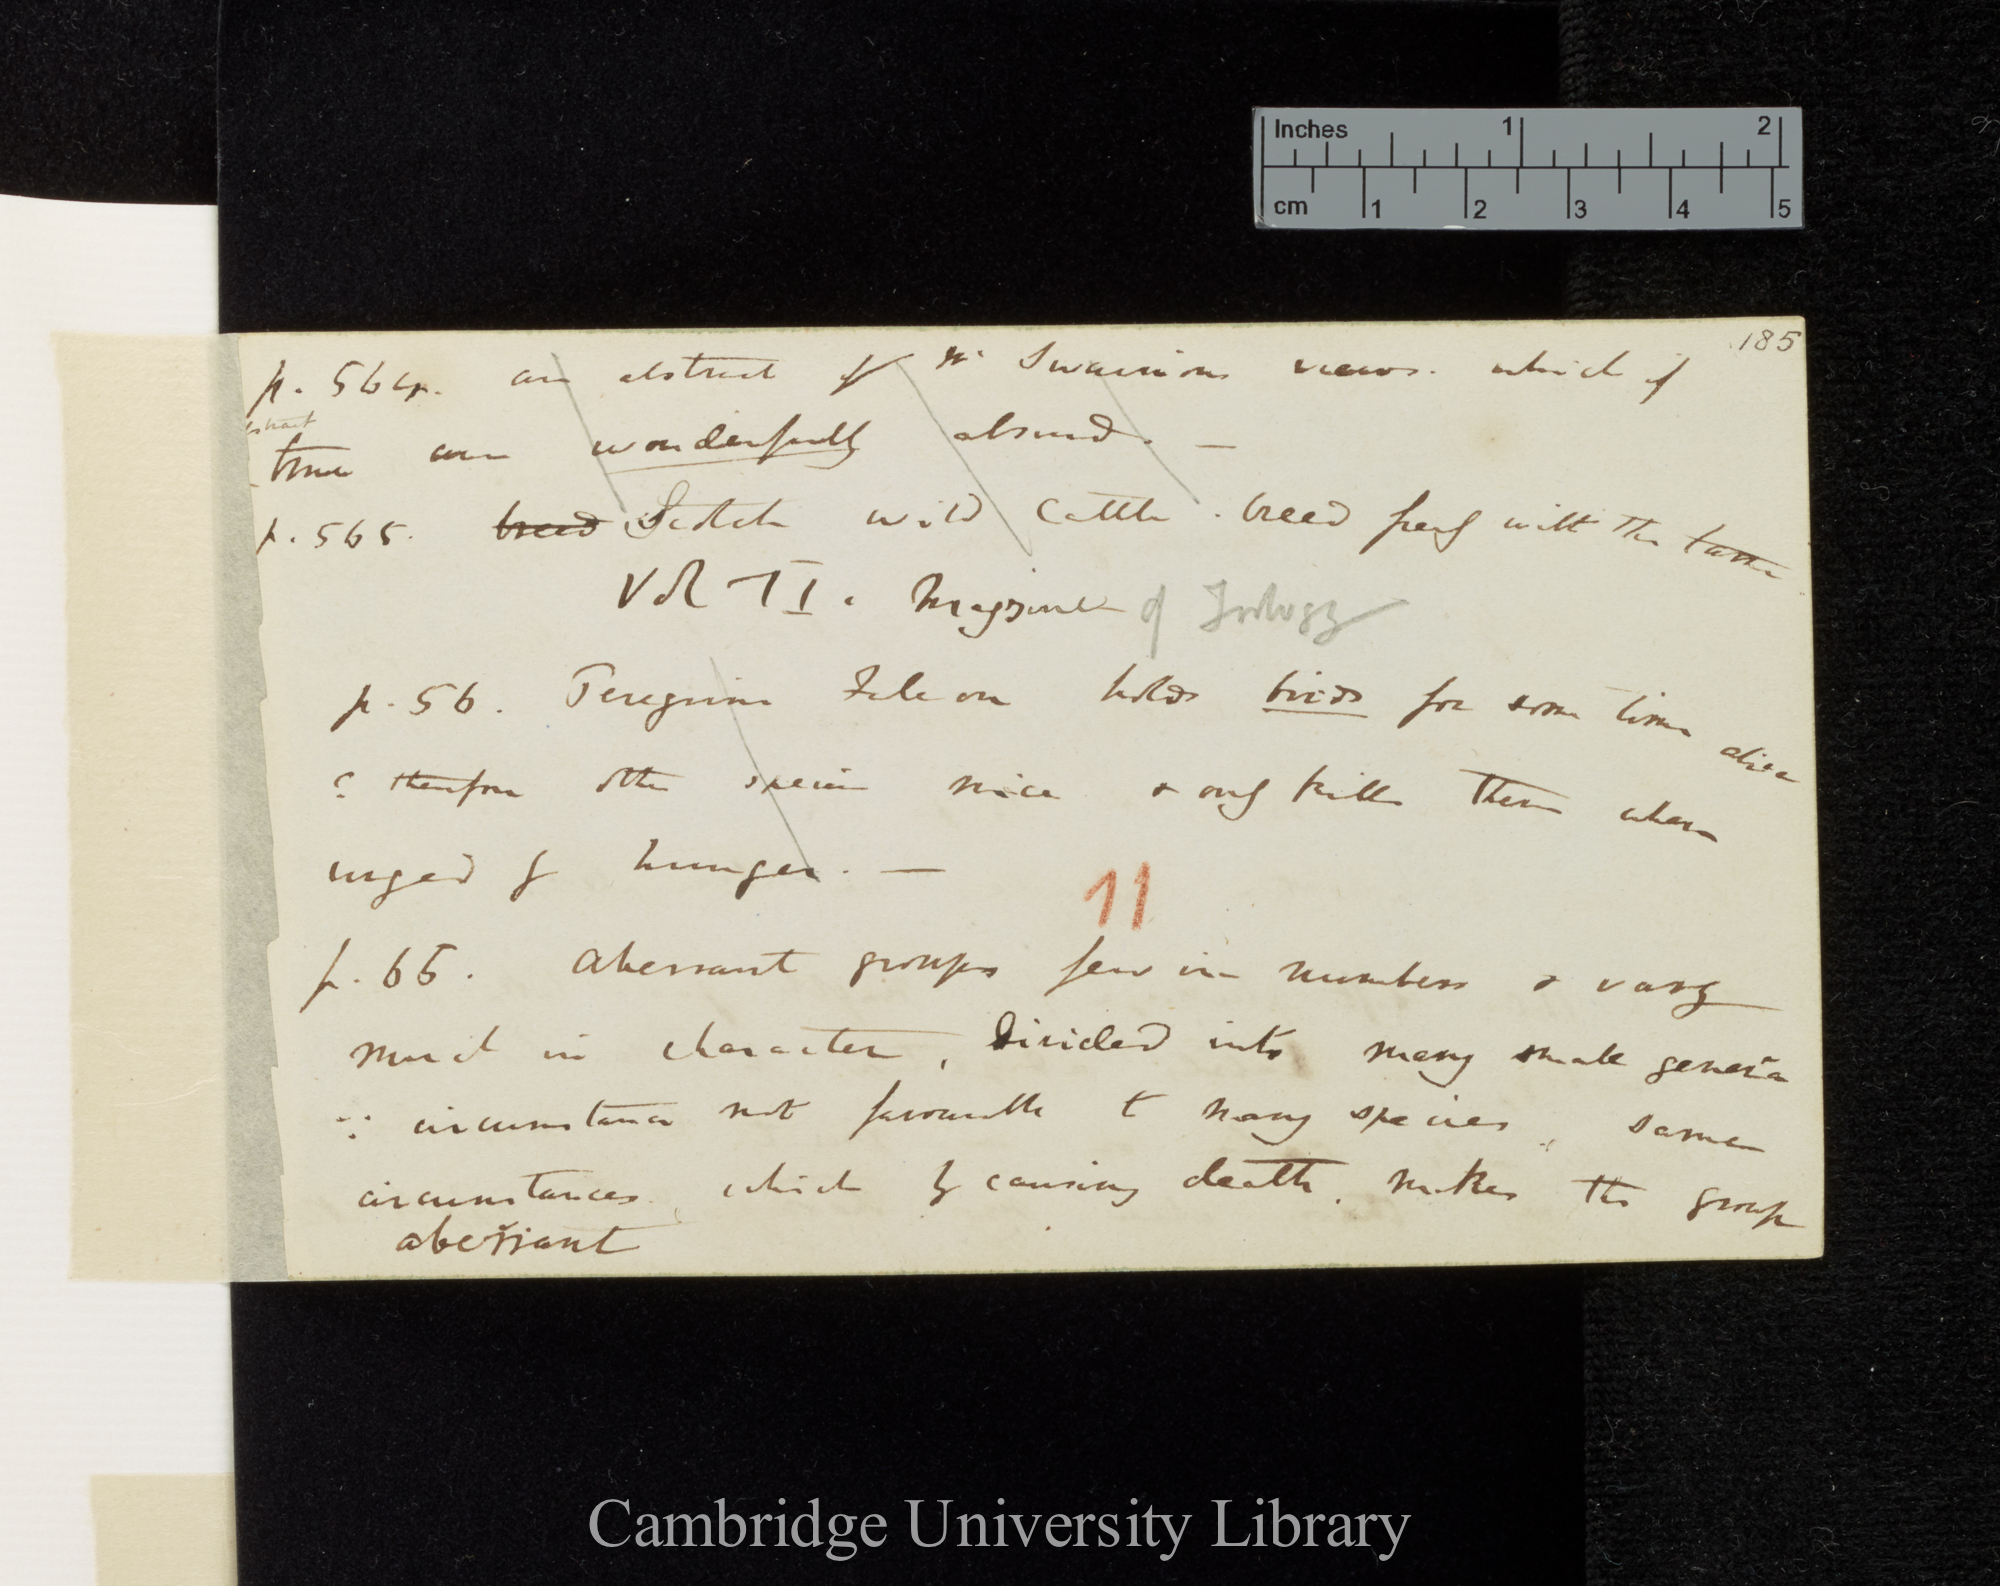 Inches 1 2
cm 1 2 3 4 5
185
p. 564. an abstract of Mr Swainsons views. which if
abstract
true are wonderfully absurd. —
p. 565. breed Scotch wild Cattle. breed freely with the tame
Vol II. Magazine of Zoology
p. 56. Peregrine Falcon holds birds for some time alive
& therefore other species mice & only kills them when
urged by hunger. —
11
p. 65. Aberrant groups few in numbers & vary
much in character, divided into many small genera
∵ circumstance not favourable to many species, same
circumstances which by causing death, makes the group
aberrant
Cambridge University Library